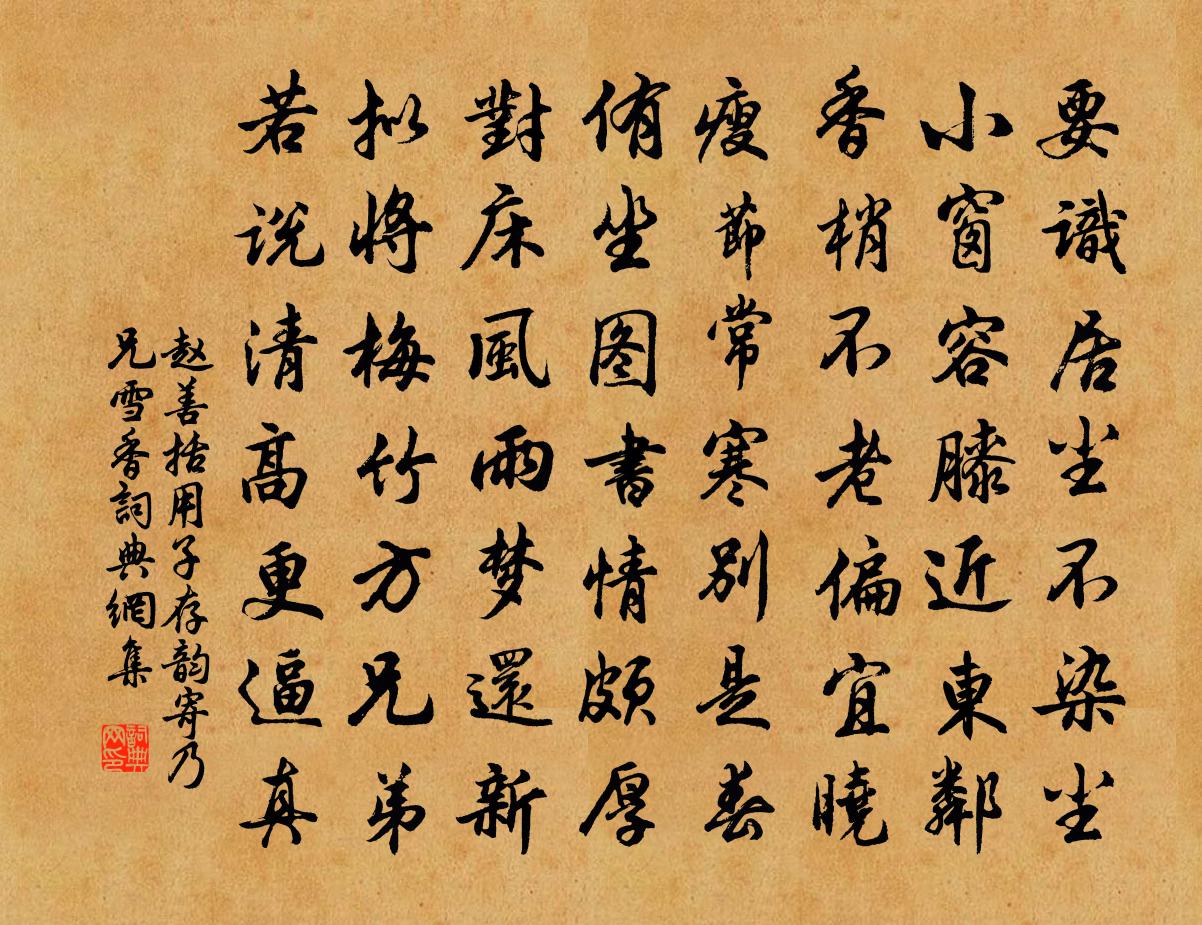 要識居尘不染尘
小窗容膝近東鄰
香梢不老偏宜曉
瘦節常寒別是春
侑坐图書情頗厚
對床風雨梦還新
拟将梅竹方兄弟
若说清高更逼真
赵善括用子存韵寄乃
兄雪香詞典網集
詞典网印